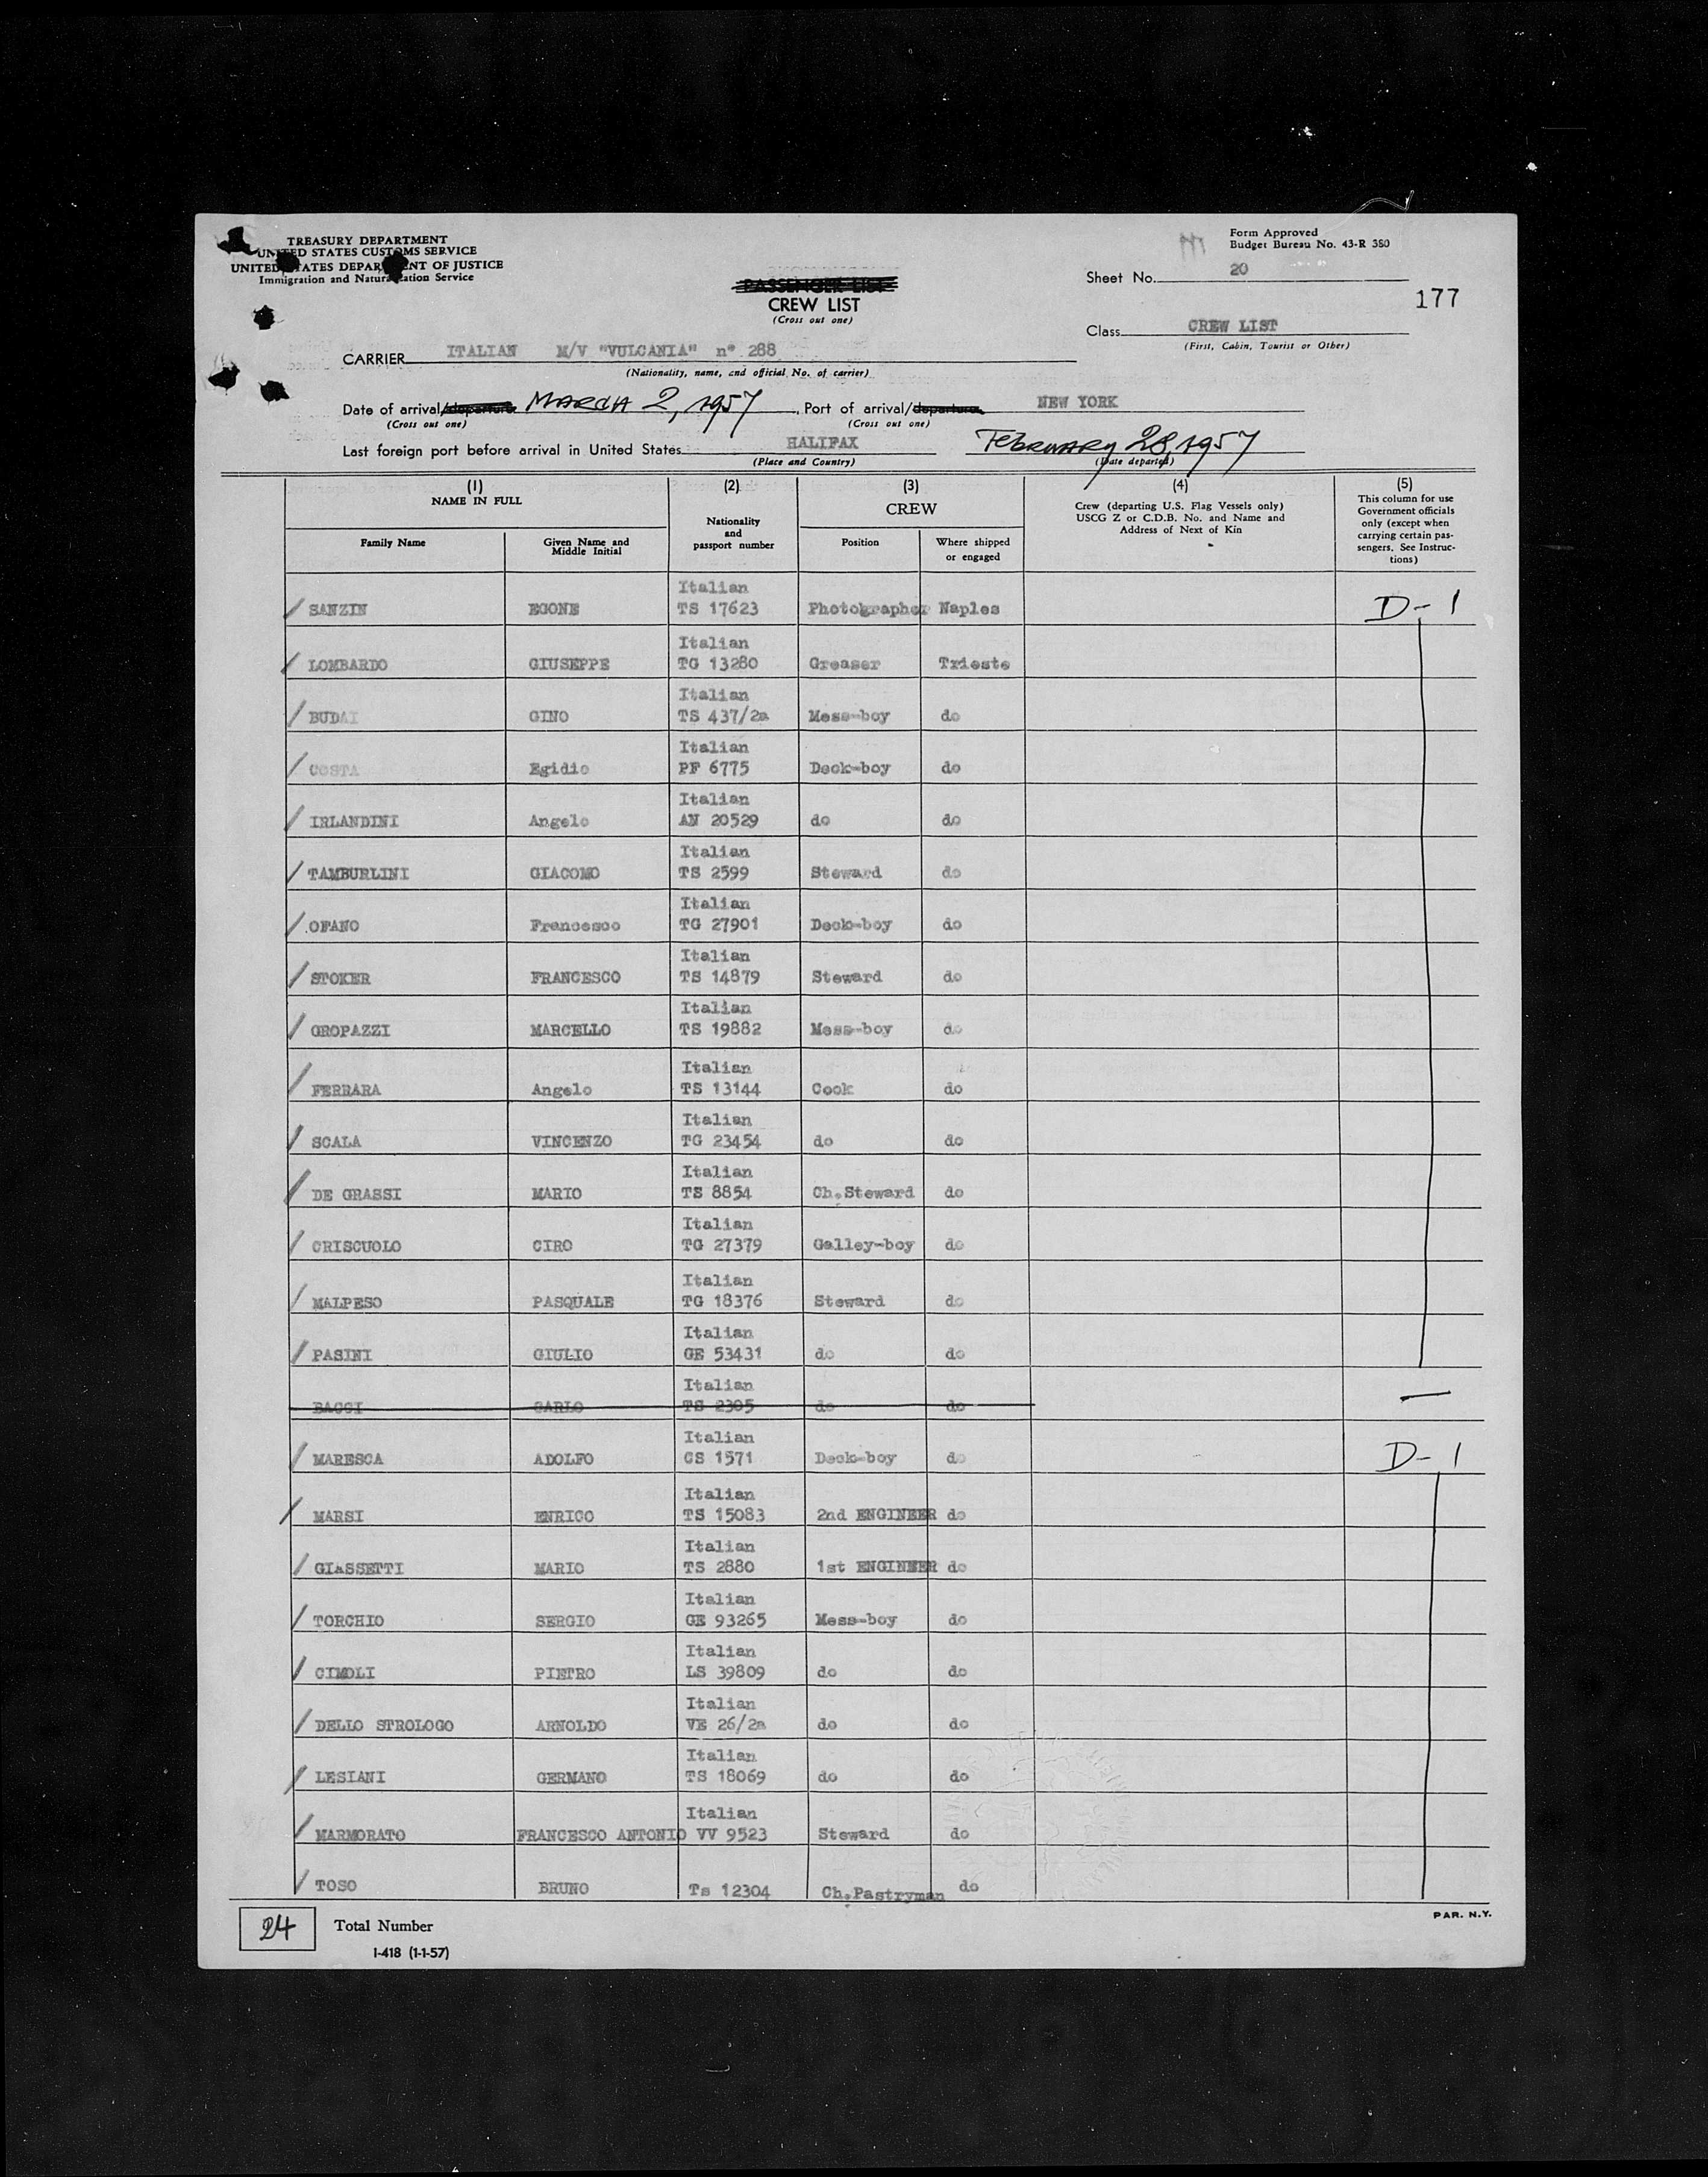 TREASURY DEPARTMENT
UNITED STATES CUSTOMS SERVICE
UNITED STATES DEPARTMENT OF JUSTICE
Immigration and Naturalization Service
Form Approved
Budget Bureau No. 43-R 380
PASSENGER LIST
CREW LIST
(Cross out one)
Sheet No. 20
177
Class CREW LIST
(First, Cabin, Tourist or Other)
CARRIER ITALIAN M/V "VULCANIA" n° 288
(Nationality, name, and official No. of carrier)
Date of arrival/departure MARCH 2, 1957, Port of arrival/departure NEW YORK
(Cross out one) (Cross out one)
Last foreign port before arrival in United States HALIFAX February 28, 1957
(Place and Country) (Date departed)
(1) NAME IN FULL
Family Name
Given Name and Middle Initial
(2)
Nationality and passport number
(3)
CREW
Position
Where shipped or engaged
(4)
Crew (departing U.S. Flag Vessels only)
USCG Z or C.D.B. No. and Name and
Address of Next of Kin
(5)
This column for use
Government officials
only (except when
carrying certain pas-
sengers. See Instruc-
tions)
Italian
SANZIN EGONE TS 17623 Photographer Naples D-1
Italian
LOMBARDO GIUSEPPE TG 13280 Greaser Trieste
Italian
BUDAI GINO TS 437/2a Mess-boy do
Italian
COSTA Egidio PF 6775 Deck-boy do
Italian
IRLANDINI Angelo AN 20529 do do
Italian
TAMBURLINI GIACOMO TS 2599 Steward do
Italian
OFANO Francesco TG 27901 Deck-boy do
Italian
STOKER FRANCESCO TS 14879 Steward do
Italian
GROPAZZI MARCELLO TS 19882 Mess-boy do
Italian
FERRARA Angelo TS 13144 Cook do
Italian
SCALA VINCENZO TG 23454 do do
Italian
DE GRASSI MARIO TS 8854 Ch.Steward do
Italian
CRISCUOLO CIRO TG 27379 Galley-boy do
Italian
MALPESO PASQUALE TG 18376 Steward do
Italian
PASINI GIULIO GE 53431 do do
Italian
BACCI CARLO TS 2305 do do —
Italian
MARESCA ADOLFO CS 1571 Deck-boy do D-1
Italian
MARSI ENRICO TS 15083 2nd ENGINEER do
Italian
GIASSETTI MARIO TS 2880 1st ENGINEER do
Italian
TORCHIO SERGIO GE 93265 Mess-boy do
Italian
CIMOLI PIETRO LS 39809 do do
Italian
DELLO STROLOGO ARNOLDO VE 26/2a do do
Italian
LESIANI GERMANO TS 18069 do do
Italian
MARMORATO FRANCESCO ANTONIO VV 9523 Steward do
TOSO BRUNO Ts 12304 Ch.Pastryman do
24 Total Number
I-418 (1-1-57)
PAR. N.Y.